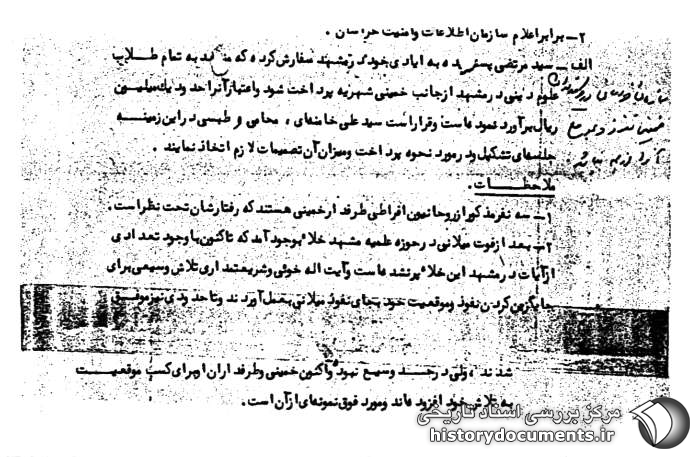 ۲- برابر اعلام سازمان اطلاعات و امنیت خراسان .
الف - سید مرتضی پسندیده به ایادی خود در مشهد سفارش کرده که به تمام طلاب
علوم دینی در مشهد از جانب خمینی شهریه پرداخت شود و اعتبار آنرا حدود یک میلیون
ریال برآورد نموده است و قرار است سید علی خامنه‌ای ، محامی و طبسی در این زمینه
جلسه‌ای تشکیل و در مورد نحوه پرداخت و میزان آن تصمیمات لازم اتخاذ نمایند .
ملاحظات .
۱- سه نفر مذکور از روحانیون افراطی طرفدار خمینی هستند که رفتارشان تحت نظر است .
۲- بعد از فوت میلانی در حوزه علمیه مشهد خلائی بوجود آمد که تاکنون با وجود تعدادی
از آیات در مشهد این خلاء پر نشده است و آیت اله خوئی و شریعتمداری تلاش وسیعی برای
جایگزین کردن نفوذ و موقعیت خود بجای نفوذ میلانی بعمل آوردند و تا حدودی نیز موفق
شدند ، ولی در حد وسیع نبود و اکنون خمینی و طرفداران او برای کسب موقعیت
به تلاش خود افزوده‌اند و مورد فوق نمونه‌ای از آن است .
مرکز بررسی اسناد تاریخی
historydocuments.ir